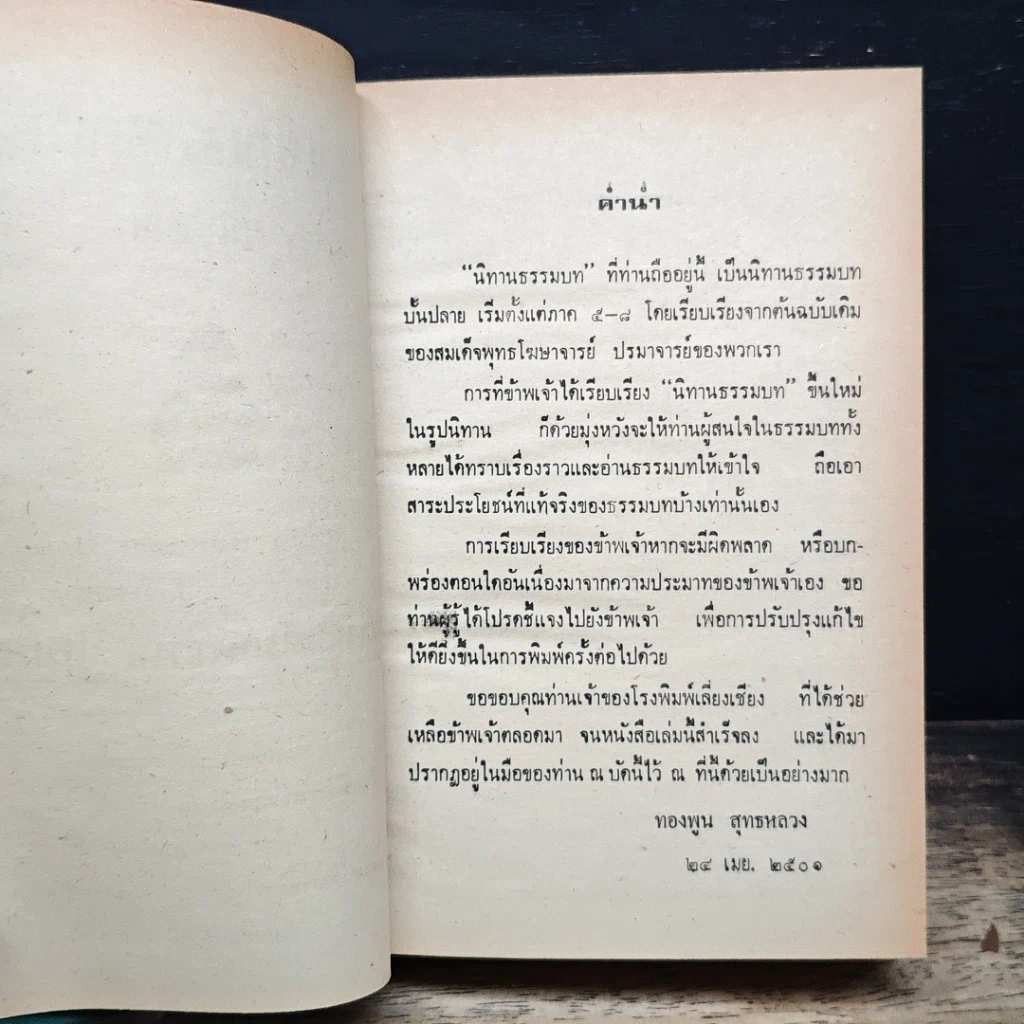 คำนำ
“นิทานธรรมบท” ที่ท่านถืออยู่นี้ เป็นนิทานธรรมบท
บั้นปลาย เริ่มตั้งแต่ภาค ๕–๘ โดยเรียบเรียงจากต้นฉบับเดิม
ของสมเด็จพุทธโฆษาจารย์ ปรมาจารย์ของพวกเรา
การที่ข้าพเจ้าได้เรียบเรียง “นิทานธรรมบท” ขึ้นใหม่
ในรูปนิทาน ก็ด้วยมุ่งหวังจะให้ท่านผู้สนใจในธรรมบททั้ง
หลายได้ทราบเรื่องราวและอ่านธรรมบทให้เข้าใจ ถือเอา
สาระประโยชน์ที่แท้จริงของธรรมบทบ้างเท่านั้นเอง
การเรียบเรียงของข้าพเจ้าหากจะมีผิดพลาด หรือบก-
พร่องตอนใดอันเนื่องมาจากความประมาทของข้าพเจ้าเอง ขอ
ท่านผู้รู้ได้โปรดชี้แจงไปยังข้าพเจ้า เพื่อการปรับปรุงแก้ไข
ให้ดียิ่งขึ้นในการพิมพ์ครั้งต่อไปด้วย
ขอขอบคุณท่านเจ้าของโรงพิมพ์เลี่ยงเชียง ที่ได้ช่วย
เหลือข้าพเจ้าตลอดมา จนหนังสือเล่มนี้สำเร็จลง และได้มา
ปรากฏอยู่ในมือของท่าน ณ บัดนี้ไว้ ณ ที่นี้ด้วยเป็นอย่างมาก
ทองพูน สุทธหลวง
๒๔ เมย. ๒๕๐๑